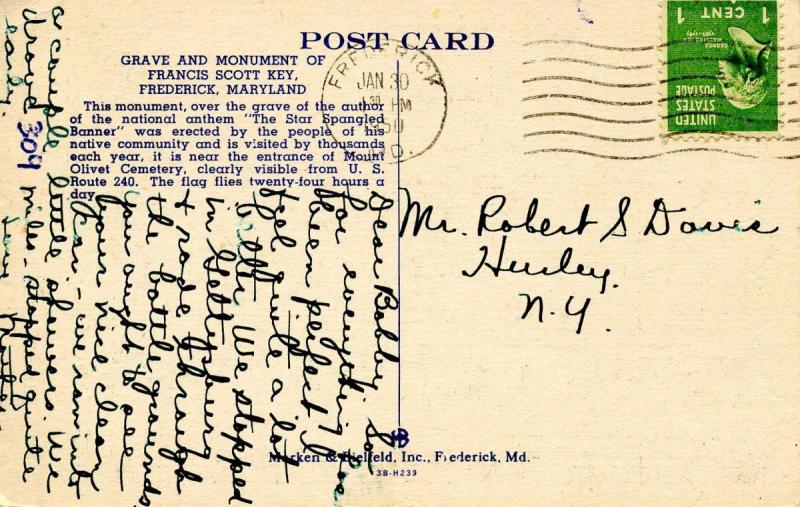 POST CARD
GRAVE AND MONUMENT OF
FRANCIS SCOTT KEY,
FREDERICK, MARYLAND
This monument, over the grave of the author
of the national anthem "The Star Spangled
Banner" was erected by the people of his
native community and is visited by thousands
each year, it is near the entrance of Mount
Olivet Cemetery, clearly visible from U. S.
Route 240. The flag flies twenty-four hours a
day.
FREDERICK
JAN 30
30 PM
1950
MD.
1 CENT 1
GEORGE
WASHINGTON
UNITED
STATES
POSTAGE
Mr. Robert S Davis
Hurley.
N.Y.
Dear Bobby. So
far everything has
been perfect. I
feel quite a lot
better. We stopped
in Gettysburg
+ rode through
the battle grounds
you ought to see
your nice clean
car - we ran into
a couple little showers. We
drove 309 miles. stopped quite
early.
Love
Mother
Marken & Bielfeld, Inc., Frederick, Md.
3B-H239